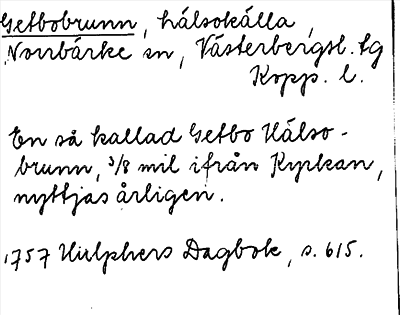 Getbobrunn, hälsokälla,
Norrbärke sn, Västerbergsl. tg
Kopp. l.
En så kallad Getbo Hälso-
brunn, 3/8 mil ifrån Kyrkan,
nyttjas årligen.
1757 Hülphers Dagbok, s. 615.